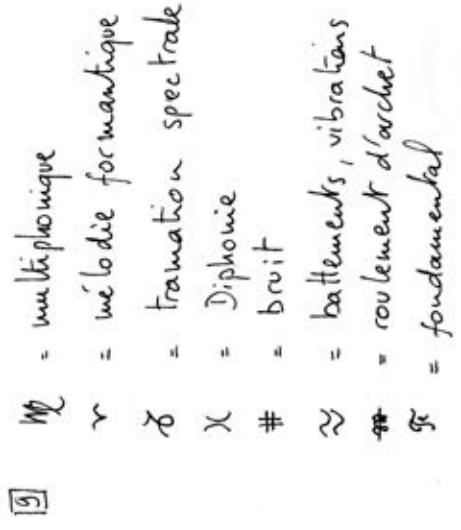 9
♏ = multiphonique
♈ = mélodie formantique
= tramation spectrale
)( = Diphonie
# = bruit
≈ = battements, vibrations
= roulement d'archet
= fondamental